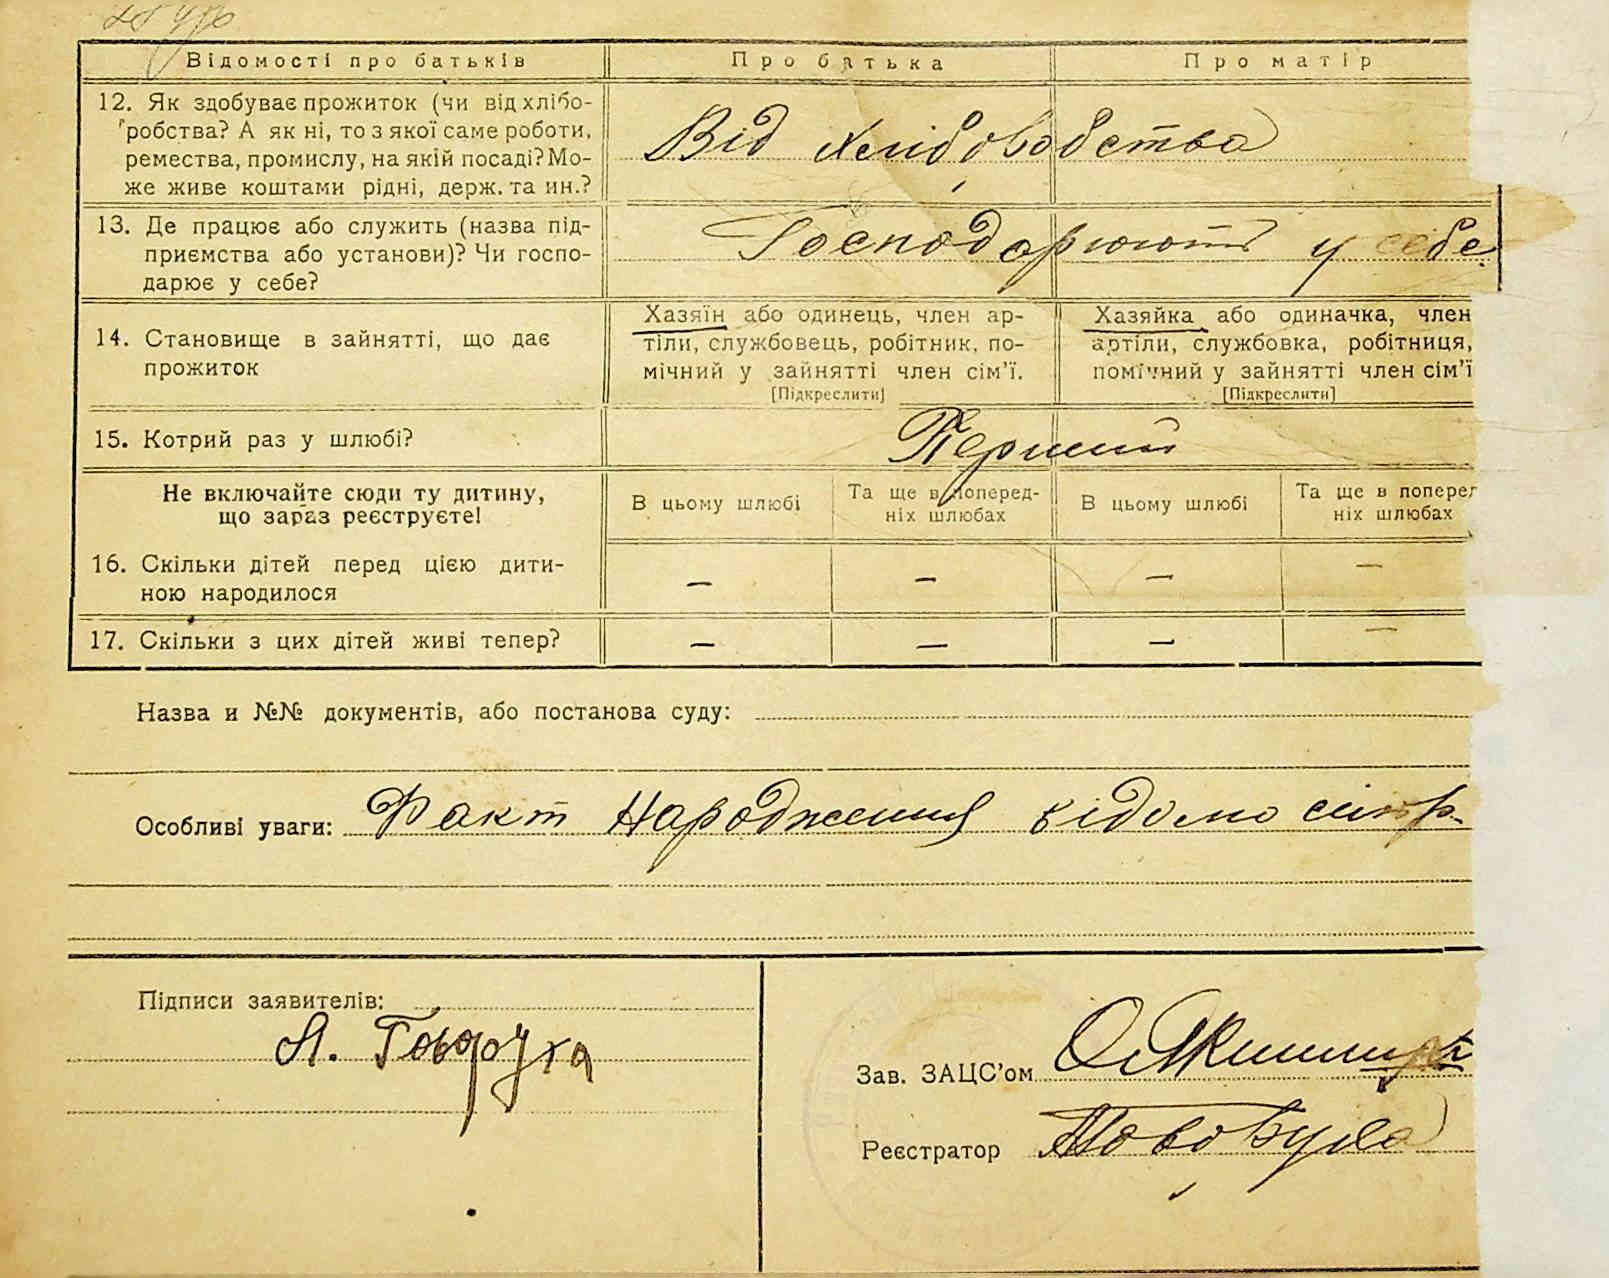 Відомості про батьків
Про батька
Про матір
12. Як здобуває прожиток (чи від хлібо-
робства? А як ні, то з якої саме роботи,
ремества, промислу, на якій посаді? Мо-
же живе коштами рідні, держ. та ин.?
Від хліборобства
13. Де працює або служить (назва під-
приємства або установи)? Чи госпо-
дарює у себе?
Господарюють у себе
14. Становище в зайнятті, що дає
прожиток
Хазяїн або одинець, член ар-
тіли, службовець, робітник, по-
мічний у зайнятті член сім’ї.
[Підкреслити]
Хазяйка або одиначка, член
артіли, службовка, робітниця,
помічний у зайнятті член сім’ї
[Підкреслити]
15. Котрий раз у шлюбі?
Перший
Не включайте сюди ту дитину,
що зараз реєструєте!
В цьому шлюбі
Та ще в поперед-
ніх шлюбах
В цьому шлюбі
Та ще в поперед
ніх шлюбах
16. Скільки дітей перед цією дити-
ною народилося
— — — —
17. Скільки з цих дітей живі тепер?
— — — —
Назва и №№ документів, або постанова суду:
Особливі уваги: Факт народження відомо
Підписи заявителів:
Я. Говоруха
Зав. ЗАЦС’ом
Реєстратор